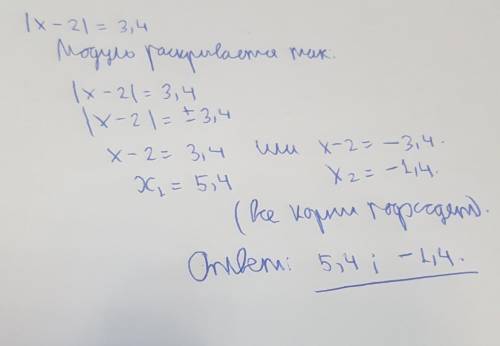 |x-2| = 3,4
Модуль раскрывается так:
|x-2| = 3,4
|x-2| = ±3,4
x-2 = 3,4 или x-2 = -3,4.
x₁ = 5,4 x₂ = -1,4.
(все корни подходят).
Ответ: 5,4 ; -1,4.